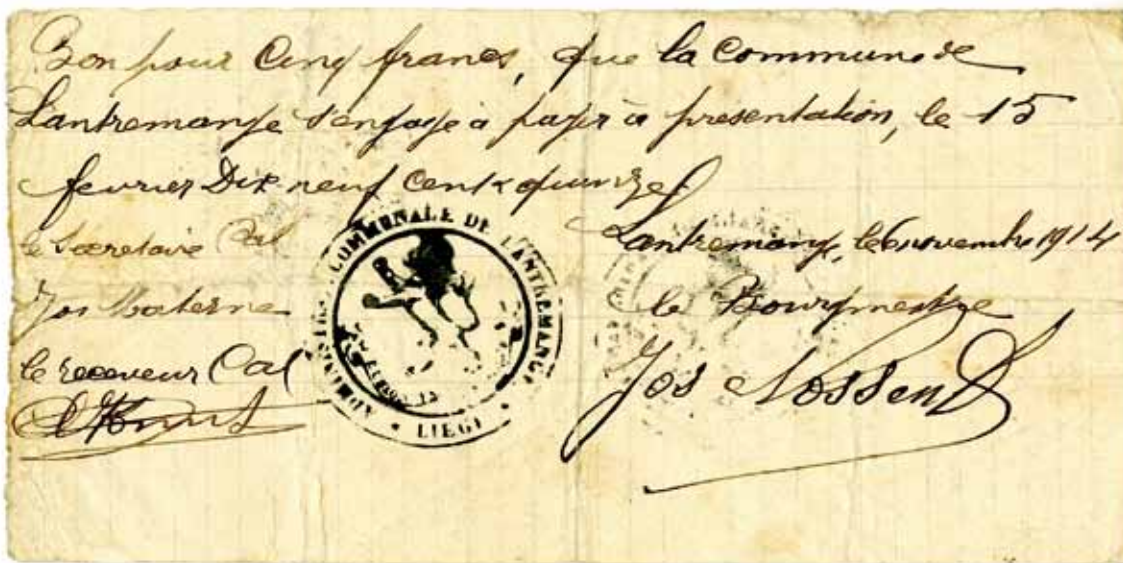 Bon pour Cinq francs, que la Commune de
Lantremange s'engage à payer à présentation, le 15
fevrier Dix neuf Cent quinze
le Secretaire Cal
Jos Materne
le receveur Cal
ADMINISTRATION COMMUNALE DE LANTREMANGE
LIEGE
Lantremange, le 6 novembre 1914
le Bourgmestre
Jos Nossent